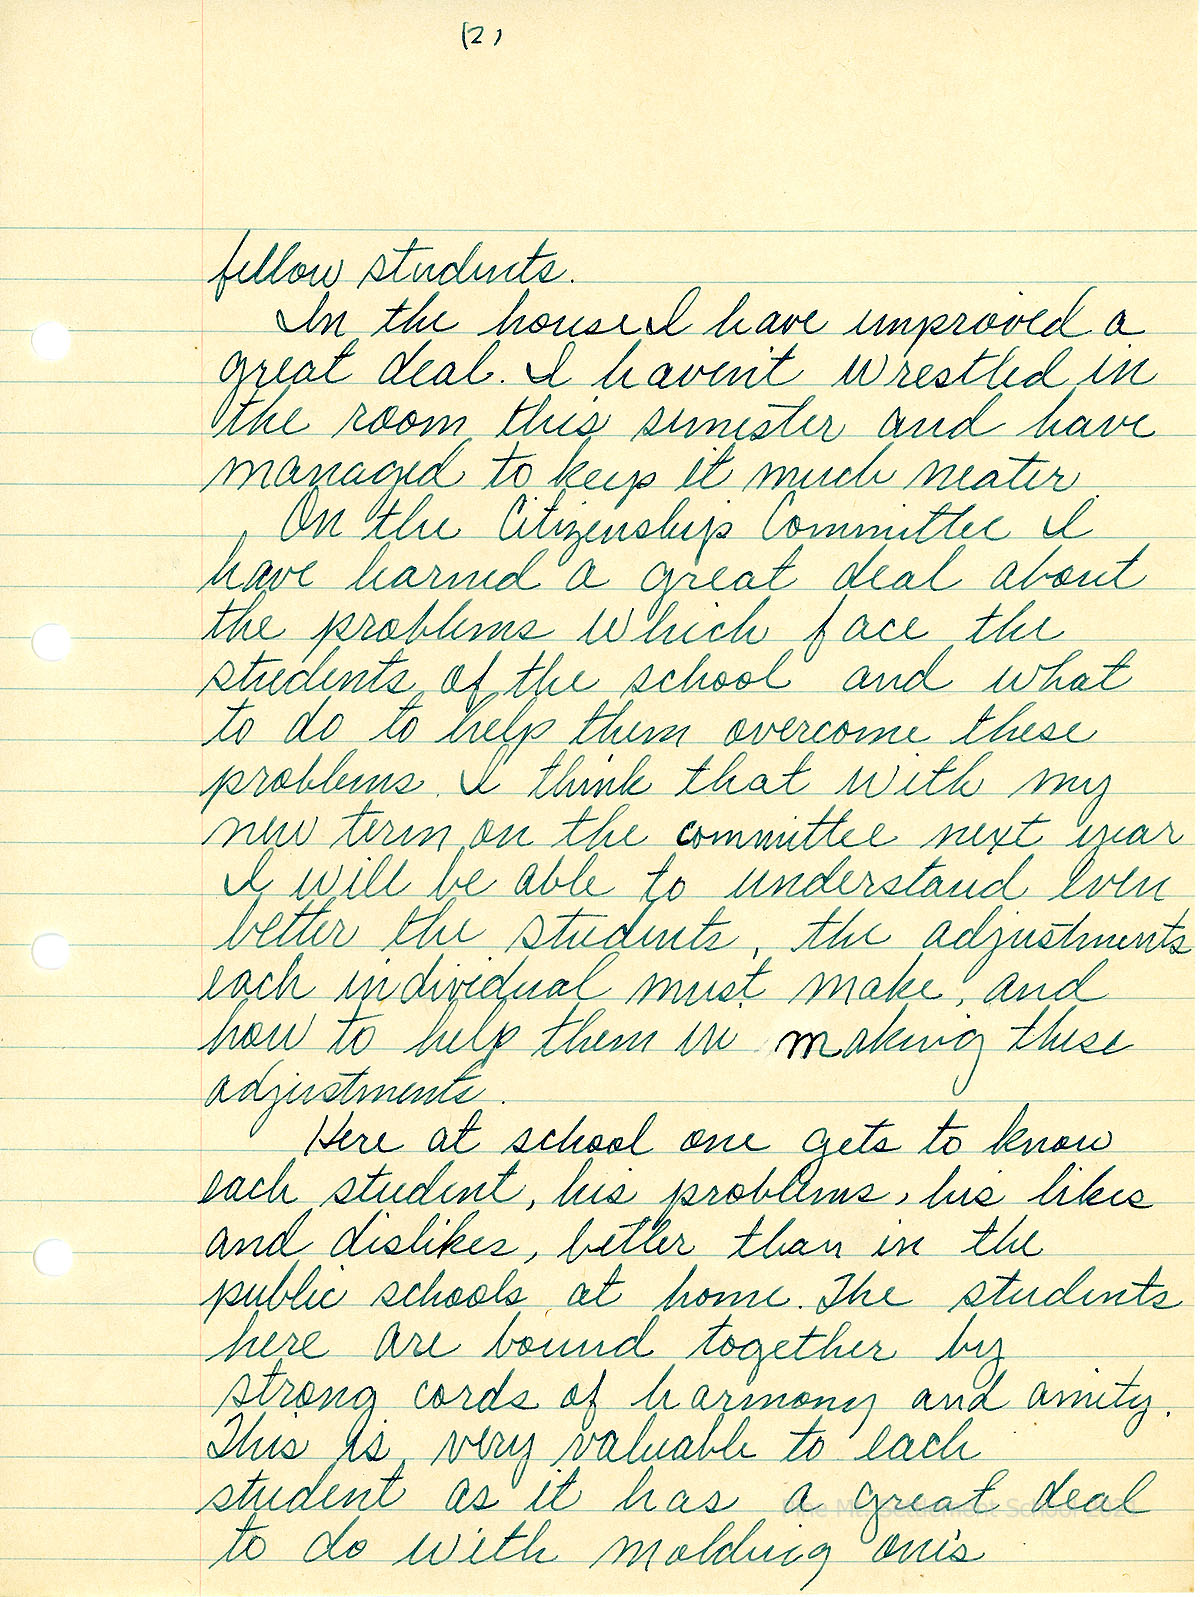 (2)
fellow students.
In the house I have improved a
great deal. I haven't wrestled in
the room this simester and have
managed to keep it much neater.
On the Citizenship Committee I
have learned a great deal about
the problems which face the
students of the school and what
to do to help them overcome these
problems. I think that with my
new term on the committee next year
I will be able to understand even
better the students, the adjustments
each individual must make, and
how to help them in making these
adjustments.
Here at school one gets to know
each student, his problems, his likes
and dislikes, better than in the
public schools at home. The students
here are bound together by
strong cords of harmony and amity.
This is very valuable to each
student as it has a great deal
to do with molding one's
Pine Mt. Settlement School 2021